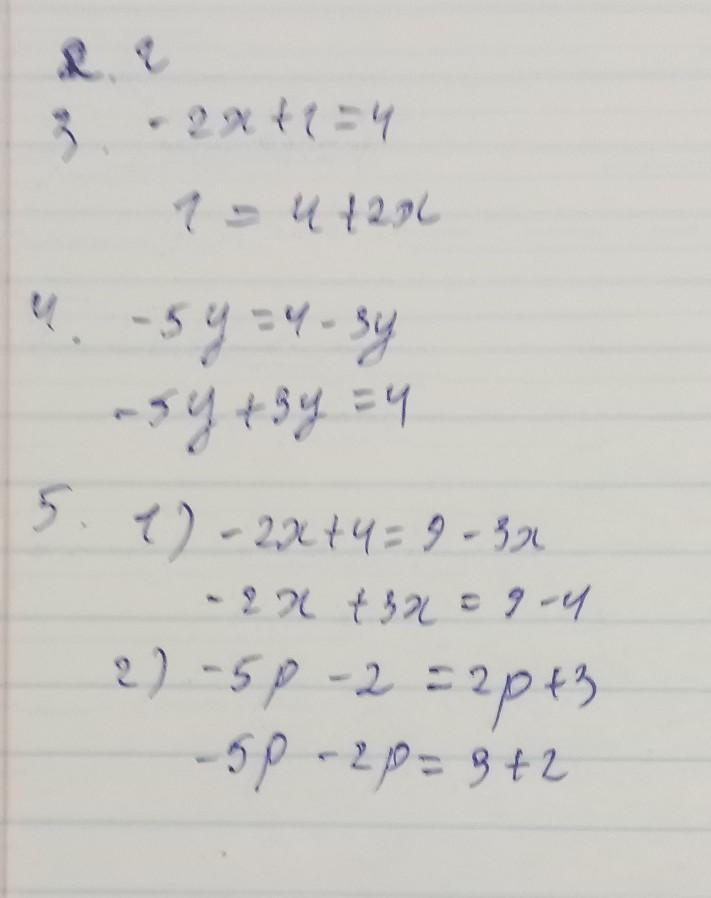 2. 2
3. -2x+1=4
1 = 4+2x
4. -5y=4-3y
-5y+3y=4
5. 1) -2x+4=9-3x
-2x+3x=9-4
2) -5p-2=2p+3
-5p-2p=3+2